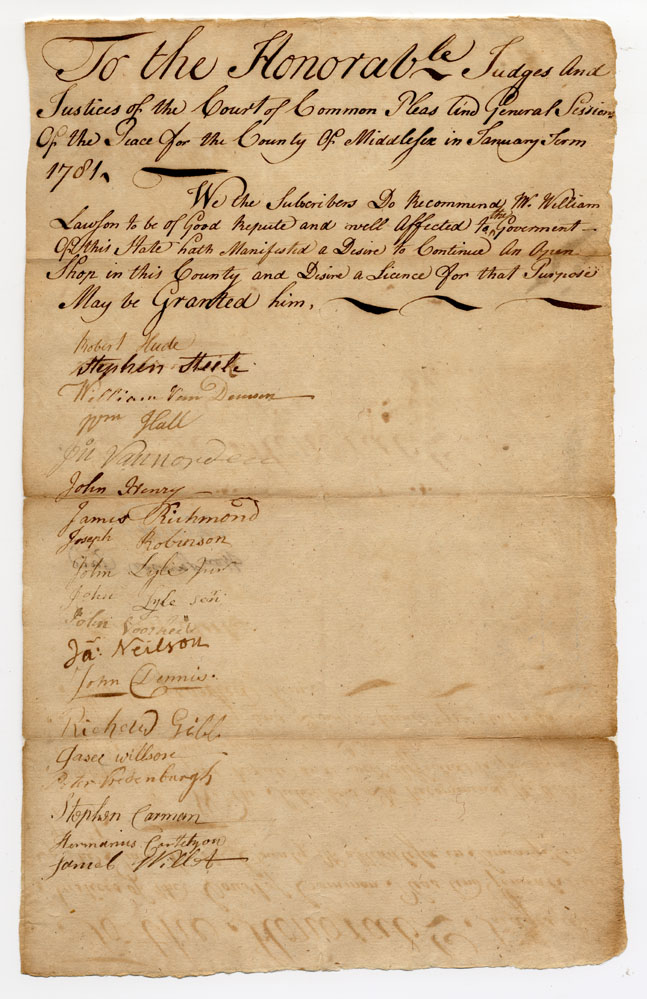 To the Honorable Judges And
Justices of the Court of Common Pleas And General Session
Of the Peace for the County Of Middlesex in January Term
1781.
We the Subscribers Do Recommend Mr. William
Lawson to be of Good Repute and well Affected to the Goverment
Of this State hath Manifested a Desire to Continue An Open
Shop in this County and Desire a Licence for that Purpose
May be Granted him,
Robert Hude
Stephen Steele
William Van Deursen
Wm Hall
Jno Vannorden
John Henry
James Richmond
Joseph Robinson
John Lyle Junr
John Lyle Senr
John Voorhees
Ja. Neilson
John Dennis.
Richard Gibb
Willson
Peter Vredenburgh
Stephen Carman
Hermanus